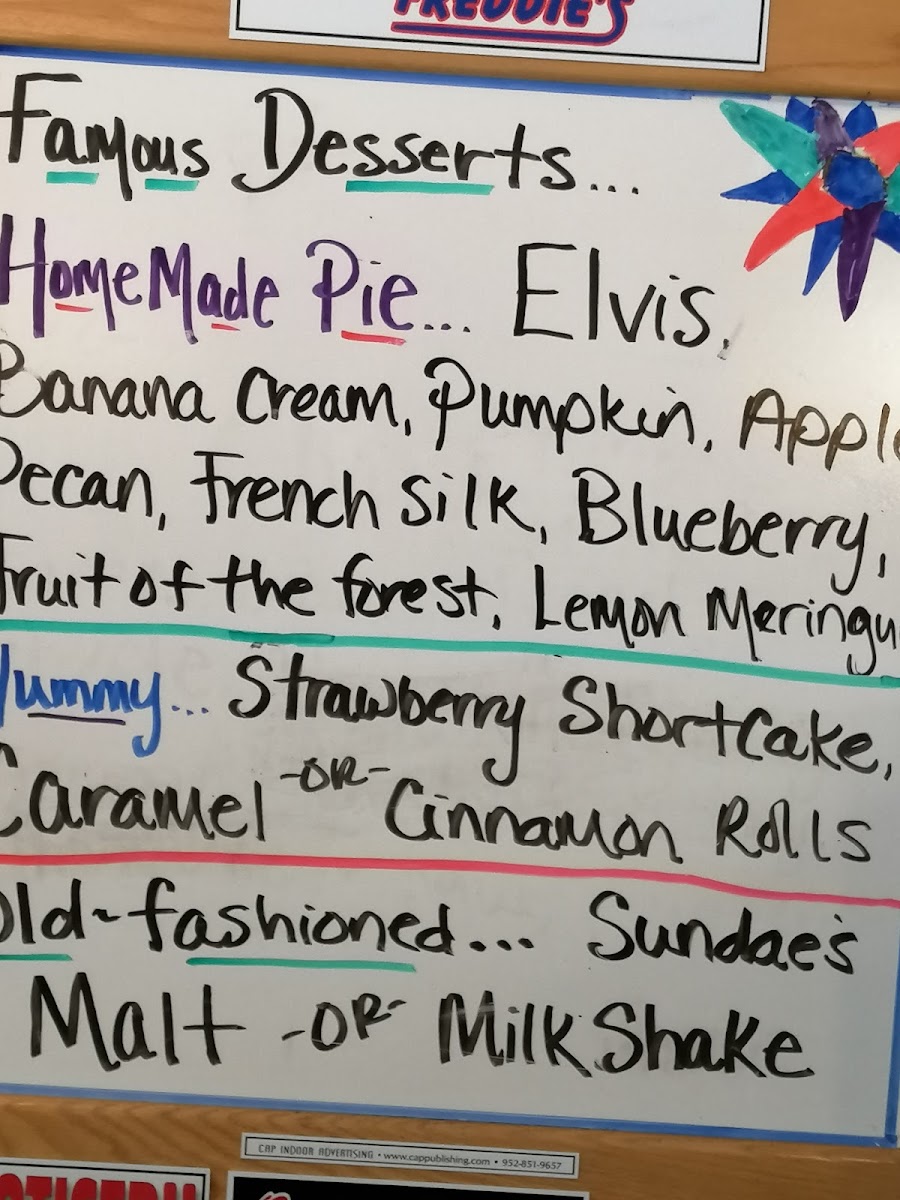 FREDDIE'S
Famous Desserts...
HomeMade Pie... Elvis,
Banana Cream, Pumpkin, Apple
Pecan, French Silk, Blueberry,
Fruit of the forest, Lemon Meringu
Yummy... Strawberry Shortcake,
Caramel -OR- Cinnamon Rolls
Old-fashioned... Sundae's
Malt -OR- MilkShake
CAP INDOOR ADVERTISING • www.cappublishing.com • 952-851-9657